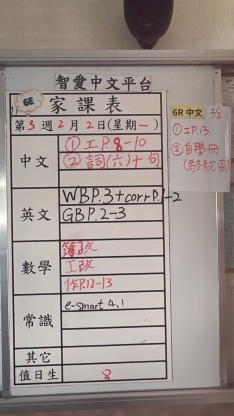 智愛中文平台
6E
家課表
第3週2月2日(星期一)
中文
①工P.8-10
②詞(六)+句
英文
WBP.3+corrP.1-2
GBP.2-3
數學
簿改
工改
作P.12-13
常識
e-smart 4.1
其它
值日生
8
6R 中文 2/2
①工P.13
②自學冊